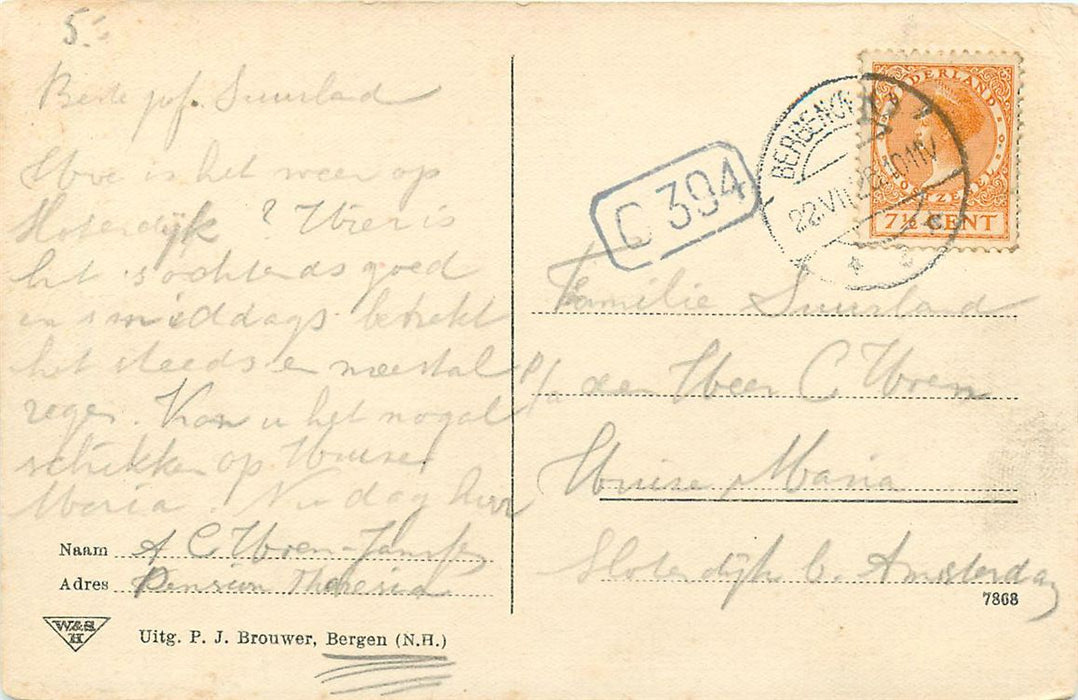 5.-
Beste juf. Suurland
Hoe is het weer op
Sloterdijk ? Hier is
het 's ochtends goed
en 's middags betrekt
het steeds en meestal
regen. Kan u het nogal
schikken op Huize
Maria. Nu dag hoor
Naam A C Horen-Jansen
Adres Pension Theresia
W&S
H
Uitg. P. J. Brouwer, Bergen (N.H.)
C 394
BERGEN(N
22.VII.28 10-11V
NEDERLAND
7½ CENT
Familie Suurland
p/a den Heer C Horen
Huize Maria
Sloterdijk b. Amsterdam
7868